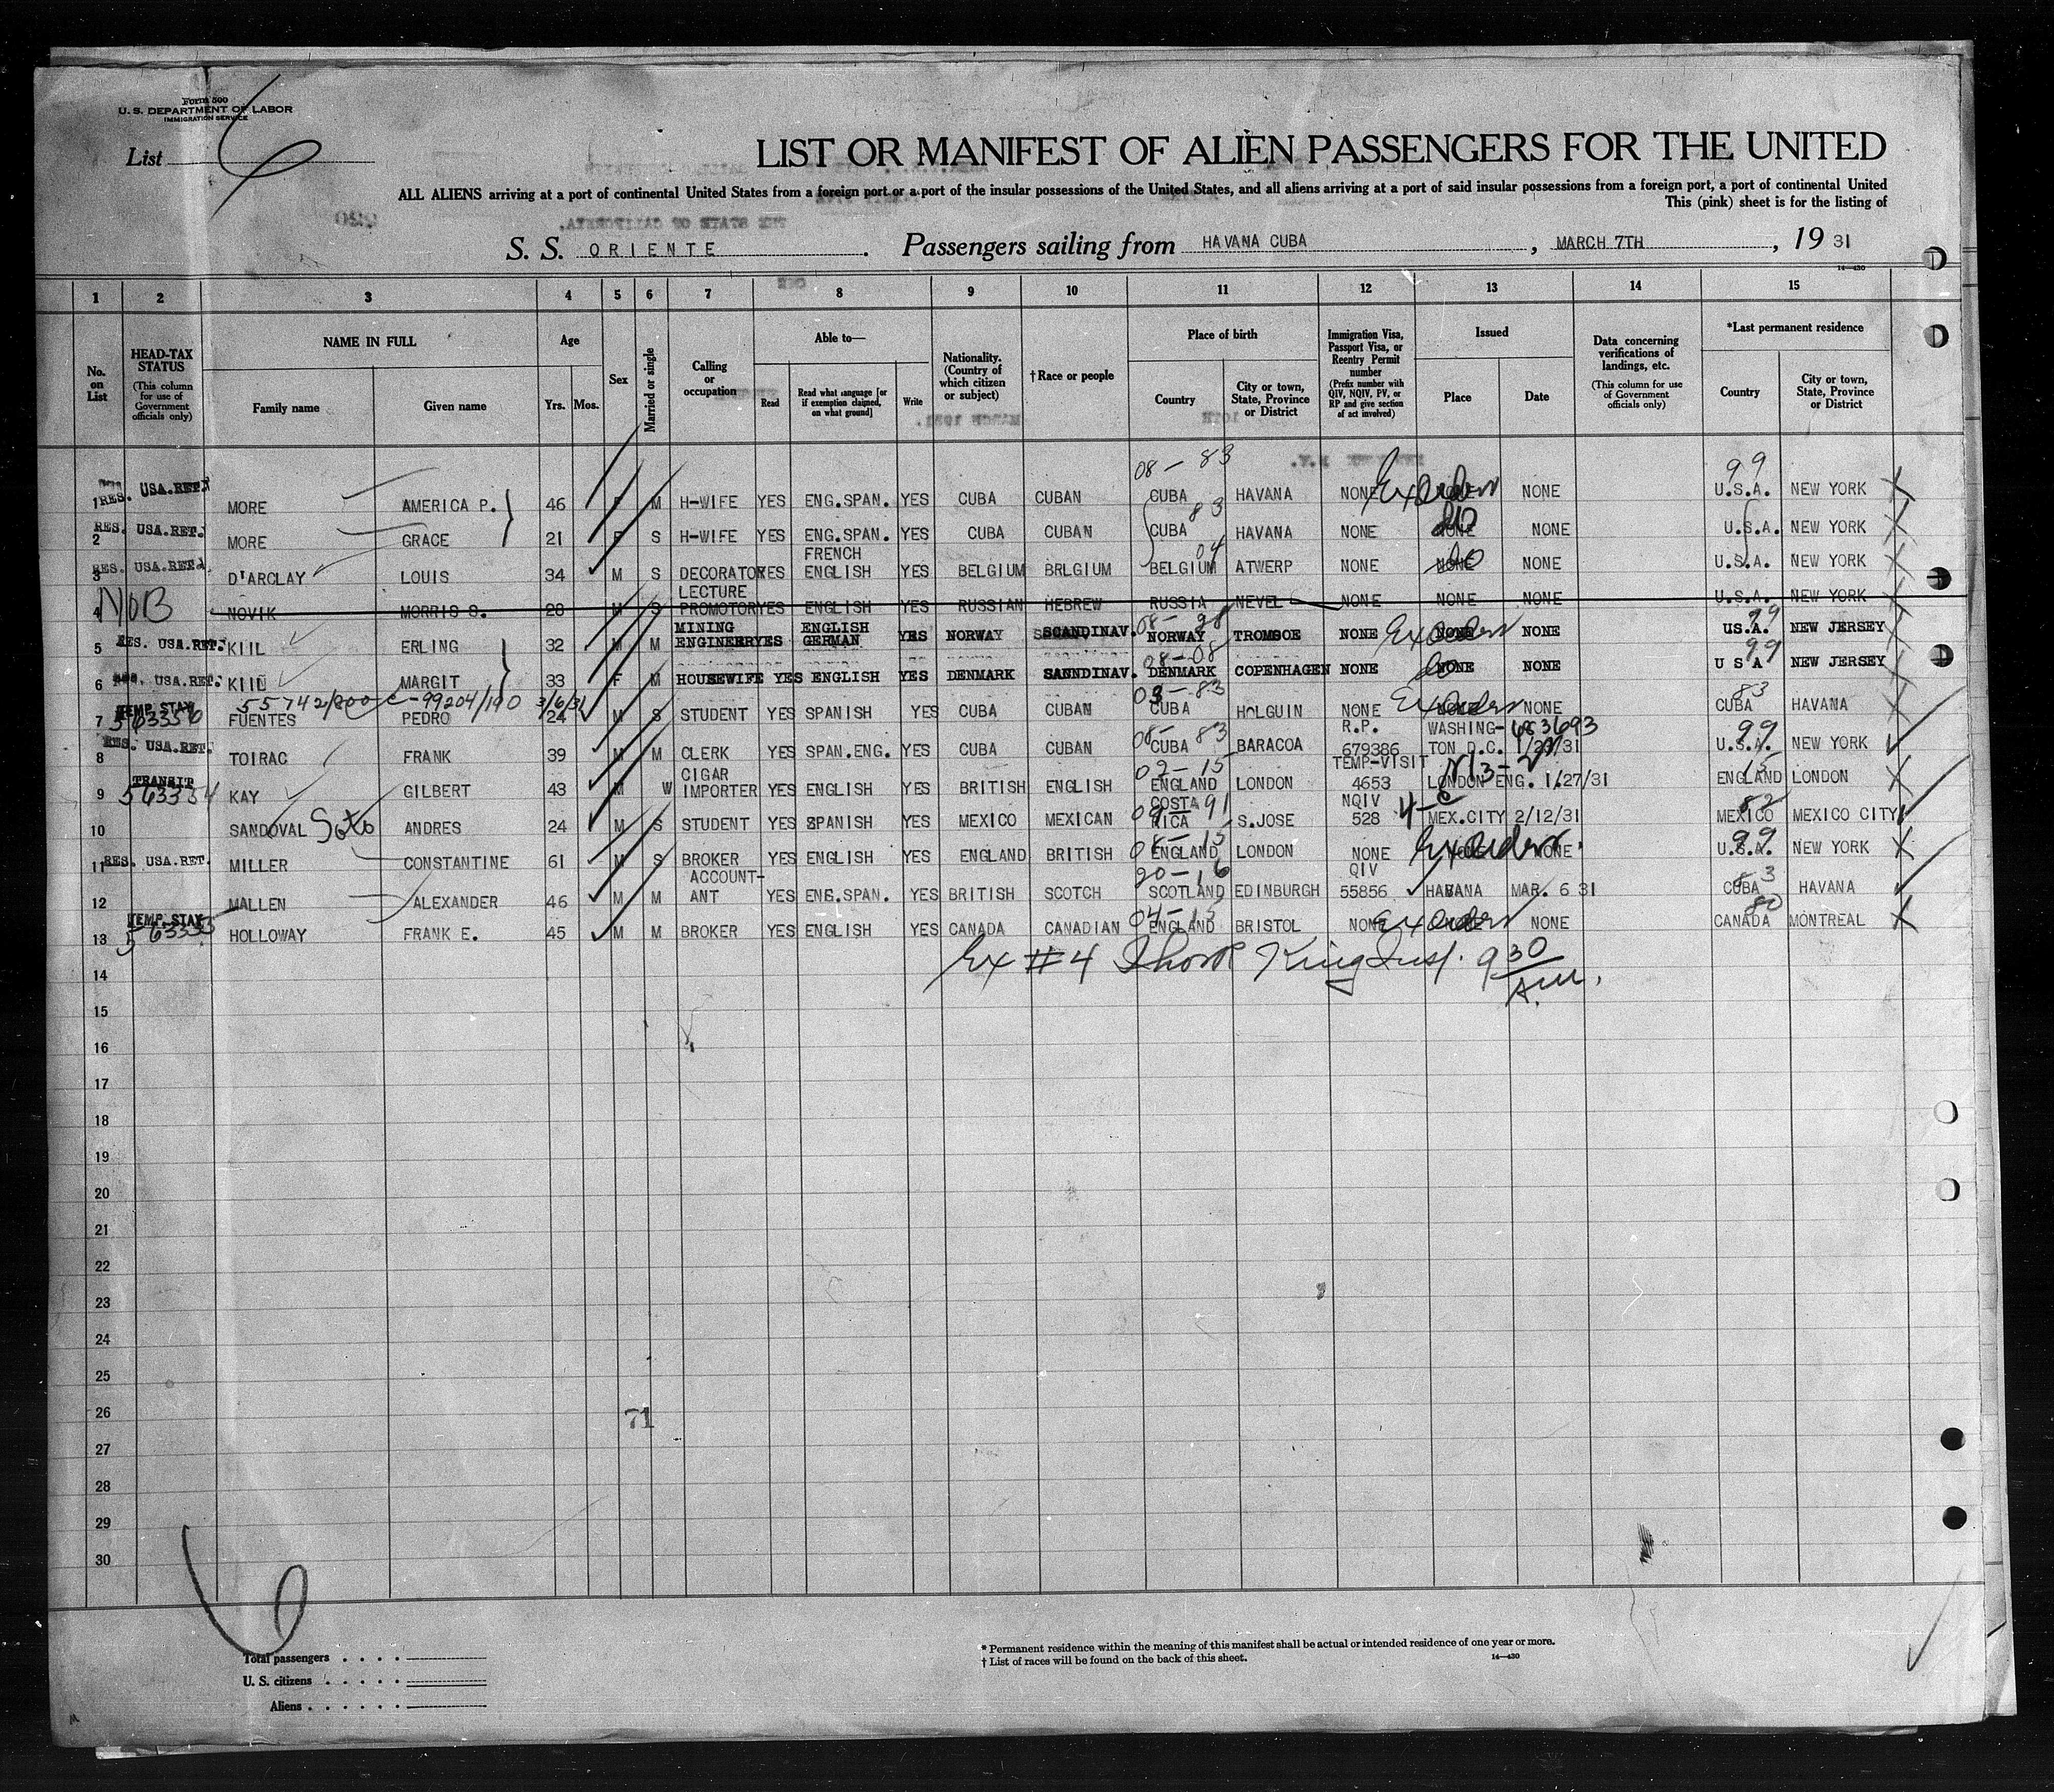 Form 500
U. S. DEPARTMENT OF LABOR
IMMIGRATION SERVICE
List 6
LIST OR MANIFEST OF ALIEN PASSENGERS FOR THE UNITED
ALL ALIENS arriving at a port of continental United States from a foreign port or a port of the insular possessions of the United States, and all aliens arriving at a port of said insular possessions from a foreign port, a port of continental United
This (pink) sheet is for the listing of
S. S. ORIENTE. Passengers sailing from HAVANA CUBA, MARCH 7TH, 19 31
14—430
1 2 3 4 5 6 7 8 9 10 11 12 13 14 15
No. on List
HEAD-TAX STATUS (This column for use of Government officials only)
NAME IN FULL Family name Given name
Age Yrs. Mos.
Sex
Married or single
Calling or occupation
Able to— Read Read what language [or if exemption claimed, on what ground] Write
Nationality. (Country of which citizen or subject)
†Race or people
Place of birth Country City or town, State, Province or District
Immigration Visa, Passport Visa, or Reentry Permit number (Prefix number with QIV, NQIV, PV, or RP and give section of act involved)
Issued Place Date
Data concerning verifications of landings, etc. (This column for use of Government officials only)
*Last permanent residence Country City or town, State, Province or District
08- 83 99
1 RES. USA.RET. MORE AMERICA P. 46 F M H-WIFE YES ENG.SPAN. YES CUBA CUBAN CUBA HAVANA NONE NONE U.S.A. NEW YORK
83
2 RES. USA.RET. MORE GRACE 21 F S H-WIFE YES ENG.SPAN. YES CUBA CUBAN CUBA HAVANA NONE NONE NONE U.S.A. NEW YORK
FRENCH 04
3 RES. USA.RET. D'ARCLAY LOUIS 34 M S DECORATOR YES ENGLISH YES BELGIUM BRLGIUM BELGIUM ATWERP NONE NONE NONE U.S.A. NEW YORK
LECTURE
4 NOB NOVIK MORRIS S. 28 M S PROMOTOR YES ENGLISH YES RUSSIAN HEBREW RUSSIA NEVEL NONE NONE NONE U.S.A. NEW YORK
MINING ENGLISH 99
5 RES. USA.RET. KIIL ERLING 32 M M ENGINEER YES GERMAN YES NORWAY SCANDINAV. NORWAY TROMSOE NONE NONE NONE US.A. NEW JERSEY
08-08 99
6 USA.RET. KIIL MARGIT 33 F M HOUSEWIFE YES ENGLISH YES DENMARK SANNDINAV. DENMARK COPENHAGEN NONE NONE NONE U S A NEW JERSEY
55742/800 C-99204/190 3/6/31 83
7 TEMP.STAY 563356 FUENTES PEDRO 24 M S STUDENT YES SPANISH YES CUBA CUBAN CUBA HOLGUIN NONE NONE CUBA HAVANA
R.P. WASHING- 683693
8 RES. USA.RET. TOIRAC FRANK 39 M M CLERK YES SPAN.ENG. YES CUBA CUBAN 08- CUBA 83 BARACOA 679386 TON D.C. 99 U.S.A. NEW YORK
CIGAR TEMP-VISIT
9 TRANSIT 563354 KAY GILBERT 43 M W IMPORTER YES ENGLISH YES BRITISH ENGLISH ENGLAND LONDON 4653 LONDON ENG. 1/27/31 ENGLAND LONDON
COSTA 91 NQIV 82
10 SANDOVAL Soto ANDRES 24 M S STUDENT YES SPANISH YES MEXICO MEXICAN RICA S.JOSE 528 MEX.CITY 2/12/31 MEXICO MEXICO CITY
08-15 99
11 RES. USA.RET. MILLER CONSTANTINE 61 M S BROKER YES ENGLISH YES ENGLAND BRITISH ENGLAND LONDON NONE NONE U.S.A. NEW YORK
ACCOUNT- 20-16 QIV
12 MALLEN ALEXANDER 46 M M ANT YES ENG.SPAN. YES BRITISH SCOTCH SCOTLAND EDINBURGH 55856 HAVANA MAR. 6 31 CUBA HAVANA
04-15 80
13 TEMP.STAY 563355 HOLLOWAY FRANK E. 45 M M BROKER YES ENGLISH YES CANADA CANADIAN ENGLAND BRISTOL NONE NONE CANADA MONTREAL
Ex #4 King Insp. 9 30 A.M.
14
15
16
17
18
19
20
21
22
23
24
25
26
71
27
28
29
30
6
Total passengers
U. S. citizens
Aliens
* Permanent residence within the meaning of this manifest shall be actual or intended residence of one year or more.
† List of races will be found on the back of this sheet.
14—430